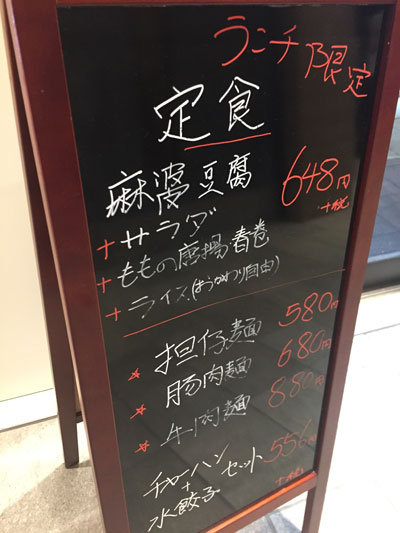 ランチ限定
定食
麻婆豆腐 648円
+税
+サラダ
+ももの唐揚 春巻
+ライス(おかわり自由)
★担仔麺 580円
★腸肉麺 680円
★牛肉麺 880円
チャーハン
+
水餃子
セット 556円
+税